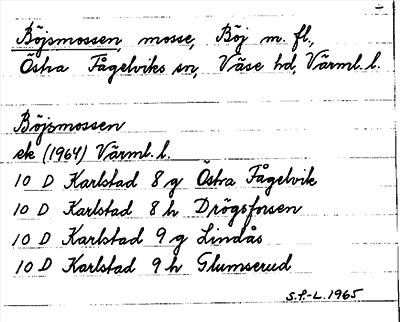 Böjsmossen, mosse, Böj m. fl.,
Östra Fågelviks sn, Väse hd, Värml. l.
Böjsmossen
ek (1964) Värml. l.
10 D Karlstad 8 g Östra Fågelvik
10 D Karlstad 8 h Drögsforsen
10 D Karlstad 9 g Lindås
10 D Karlstad 9 h Glumserud
S.F.-L. 1965